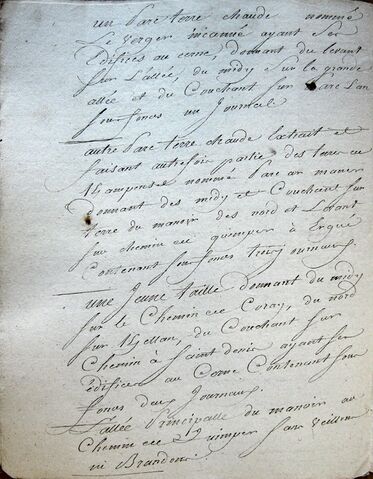 un parc terre chaude nommé
Le verger incanné ayant ses
Edifices au cerne, donnant du levant
sur L'allée, du midy sur la grande
allée et du Couchant sur parc Lan
sous fonds un Journal
autre parc terre chaude Extrait et
faisant autrefois partie des terres en
nommé parc ar maner
Donnant des midy et Couchant sur
terre du manoir des nord et Levant
sur chemin de quimper à Ergué
Contenant sous fonds trois journaux.
une Jeune taille donnant du midy
sur le Chemin de Coray, du nord
sur du Couchant sur
Chemin à Saint denis ayant ses
édifices au Cerne Contenant sous
fonds deux Journaux.
L'allée Principalle du manoir au
Chemin de Quimper sans
ni Brandons